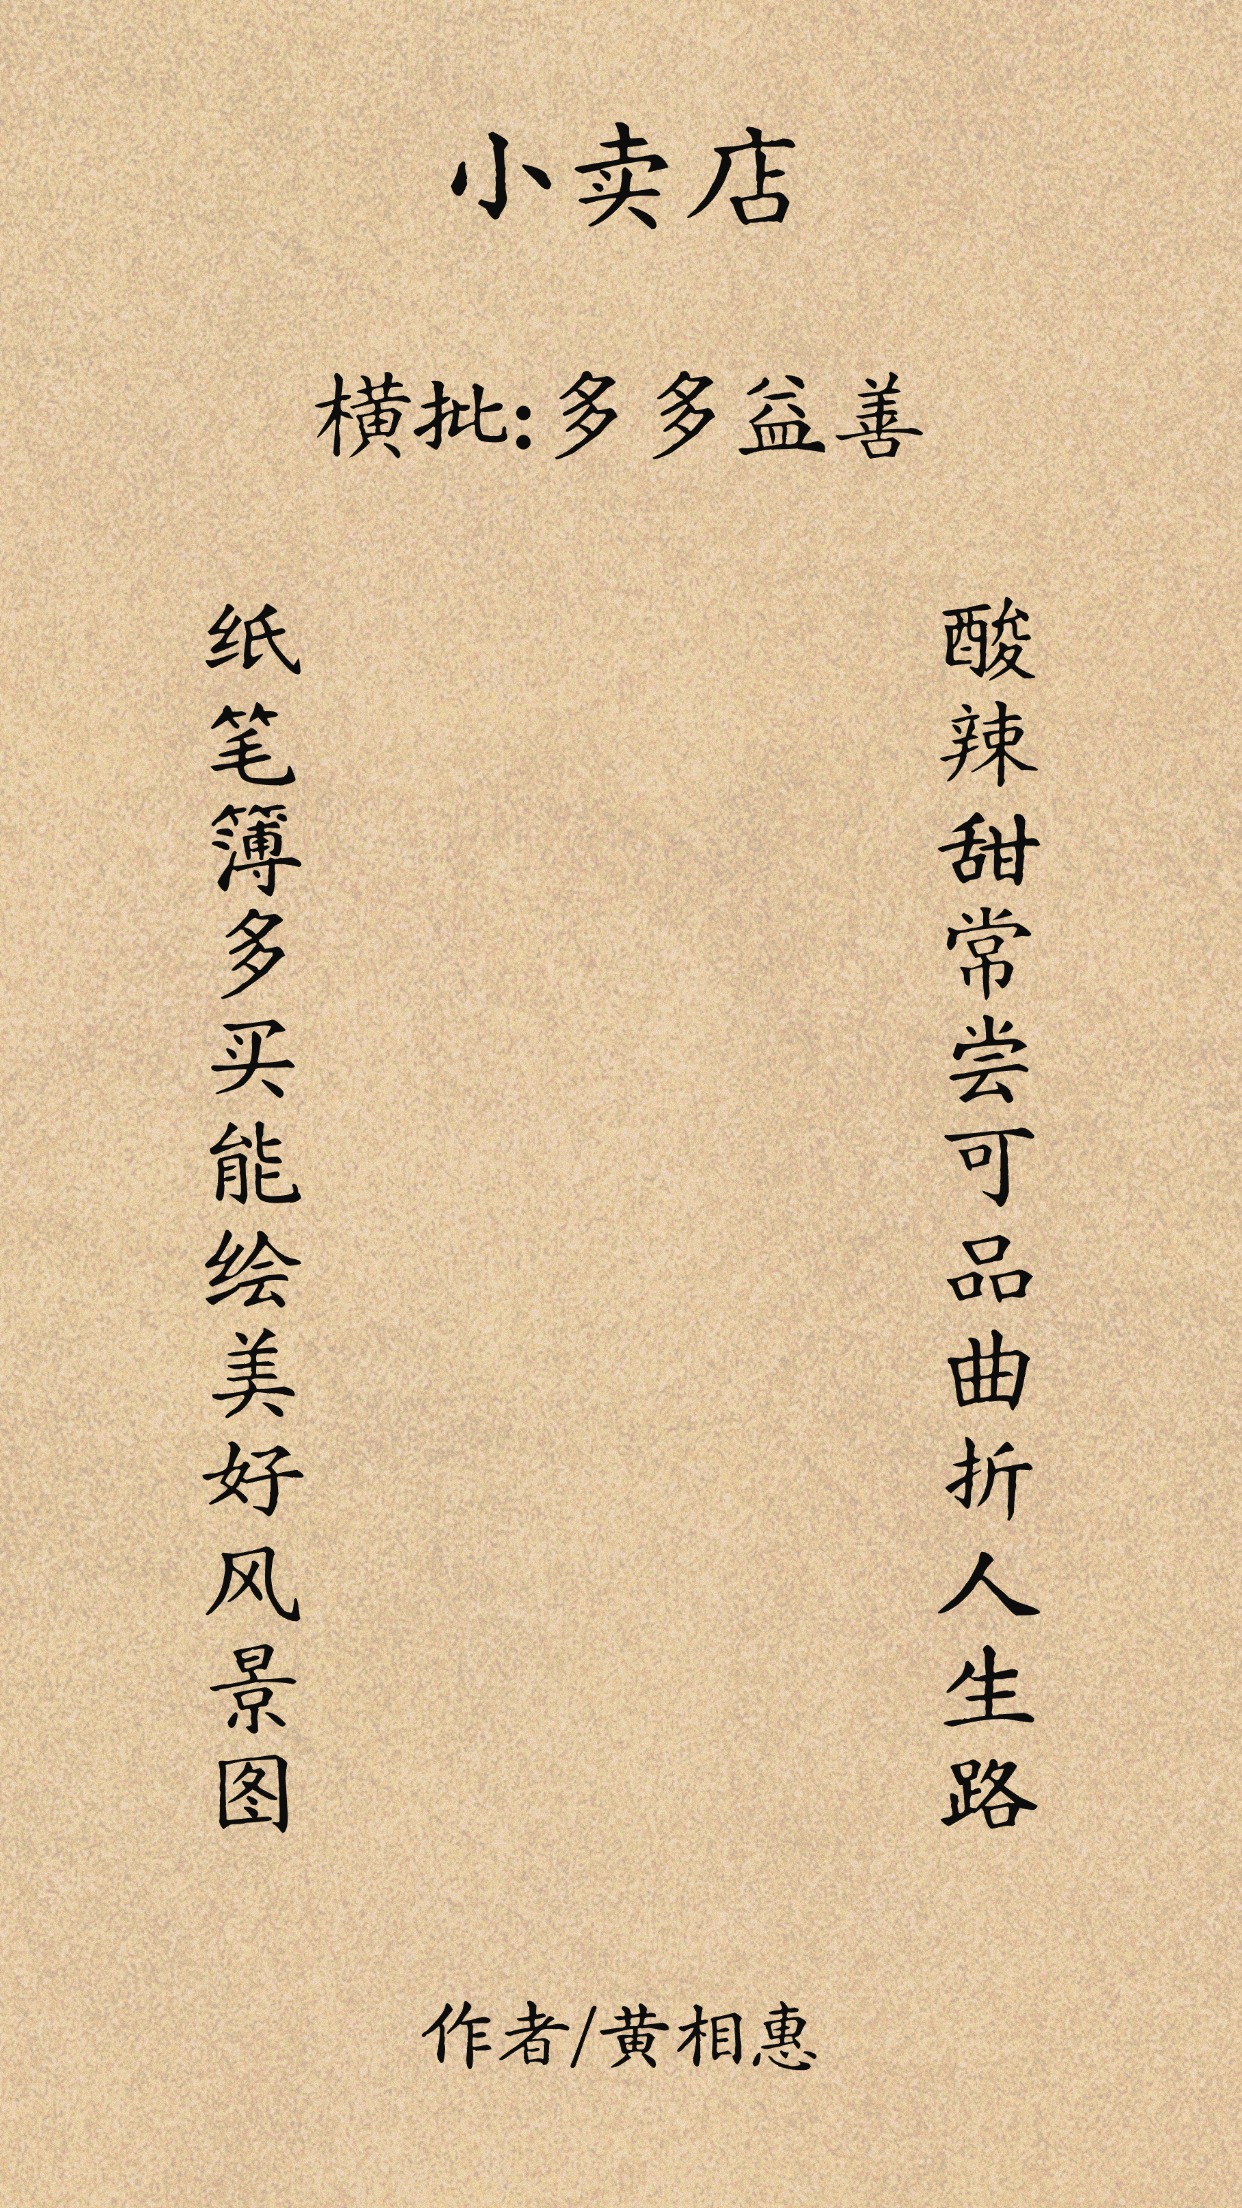 小卖店
横批:多多益善
酸辣甜常尝可品曲折人生路
纸笔簿多买能绘美好风景图
作者/黄相惠